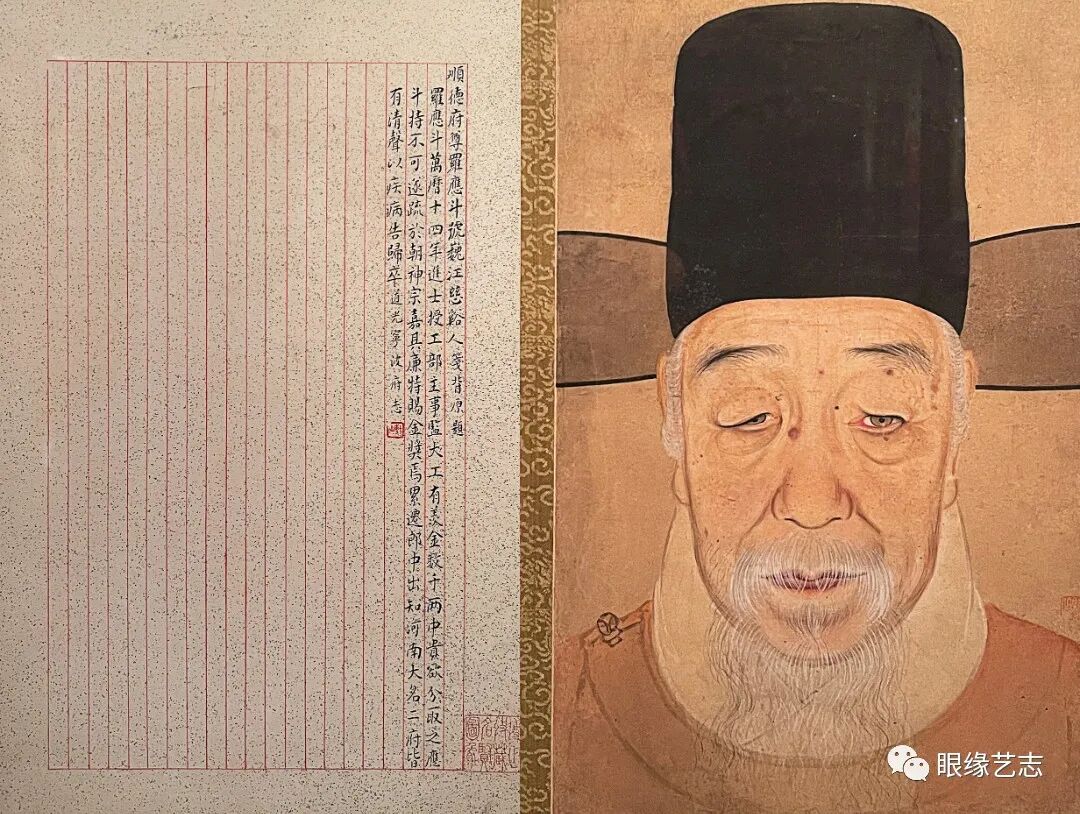 順德府尊羅應斗號巍江慈谿人箋背原題
羅應斗萬曆十四年進士授工部主事監大工有羨金數千兩中貴欲分取之應
斗持不可遂疏於朝神宗嘉其廉特賜金獎焉累遷郎中出知河南大名二府皆
有清聲以疾病告歸卒道光寧波府志
眼缘艺志